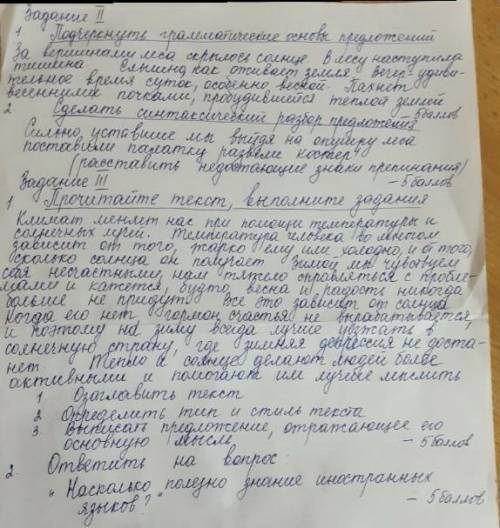 Задание II
1. Подчеркнуть грамматические основы предложений
За вершинами леса скрылось солнце. В лесу наступила
тишина. Слышно как оживает земля. Вечер - удиви-
тельное время суток, особенно весной. Пахнет
весенними почками, пробудившейся теплой землей
- 5баллов
2 Сделать синтаксический разбор предложения
Сильно уставшие мы выйдя на опушку леса
поставили палатку развели костер
(расставить недостающие знаки препинания)
- 5баллов
Задание III
1 Прочитайте текст, выполните задания
Климат меняет нас при помощи температуры и
солнечных лучей. Температура человека во многом
зависит от того, жарко ему или холодно, и от того,
сколько солнца он получает. Зимой мы чувствуем
себя несчастными, нам тяжело справляться с пробле-
мами и кажется, будто весна и радость никогда
больше не придут. Все это зависит от солнца.
Когда его нет гормон счастья не вырабатывается,
и поэтому на зиму всегда лучше уезжать в
солнечную страну, где зимняя депрессия не доста-
нет. Тепло и солнце делают людей более
активными и помогают им лучше мыслить
1 Озаглавить текст
2 Определить тип и стиль текста
3 Выписать предложение, отражающее его
основную мысль
- 5баллов
2. Ответить на вопрос:
"Насколько полезно знание иностранных
языков?"
- 5баллов